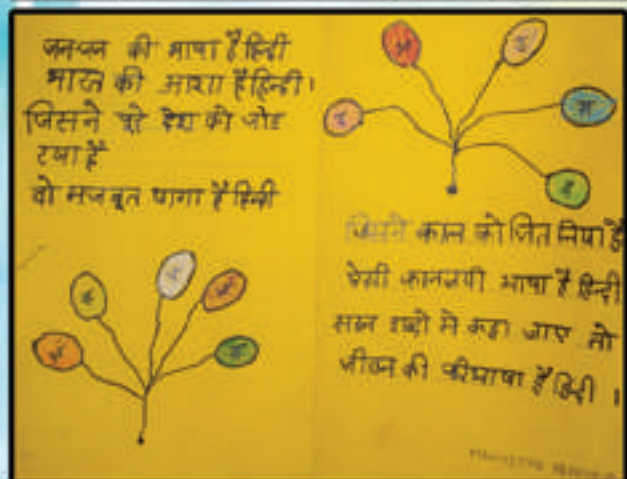 जन-जन की भाषा है हिन्दी
भारत की आशा है हिन्दी।
जिसने पूरे देश को जोड़
रखा है
वो मजबूत धागा है हिन्दी
जिसने काल को जित लिया है
ऐसी कालजयी भाषा है हिन्दी
सरल शब्दो मे कहा जाए तो
जीवन की परिभाषा है हिन्दी ।